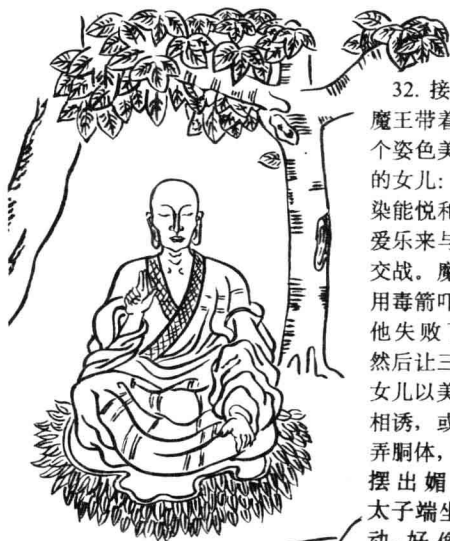 32. 接
魔王带着
个姿色美
的女儿：
染能悦和
爱乐来与
交战。魔
用毒箭吓
他失败
然后让三
女儿以美
相诱，或
弄胴体，
摆出媚
太子端坐
动 好像